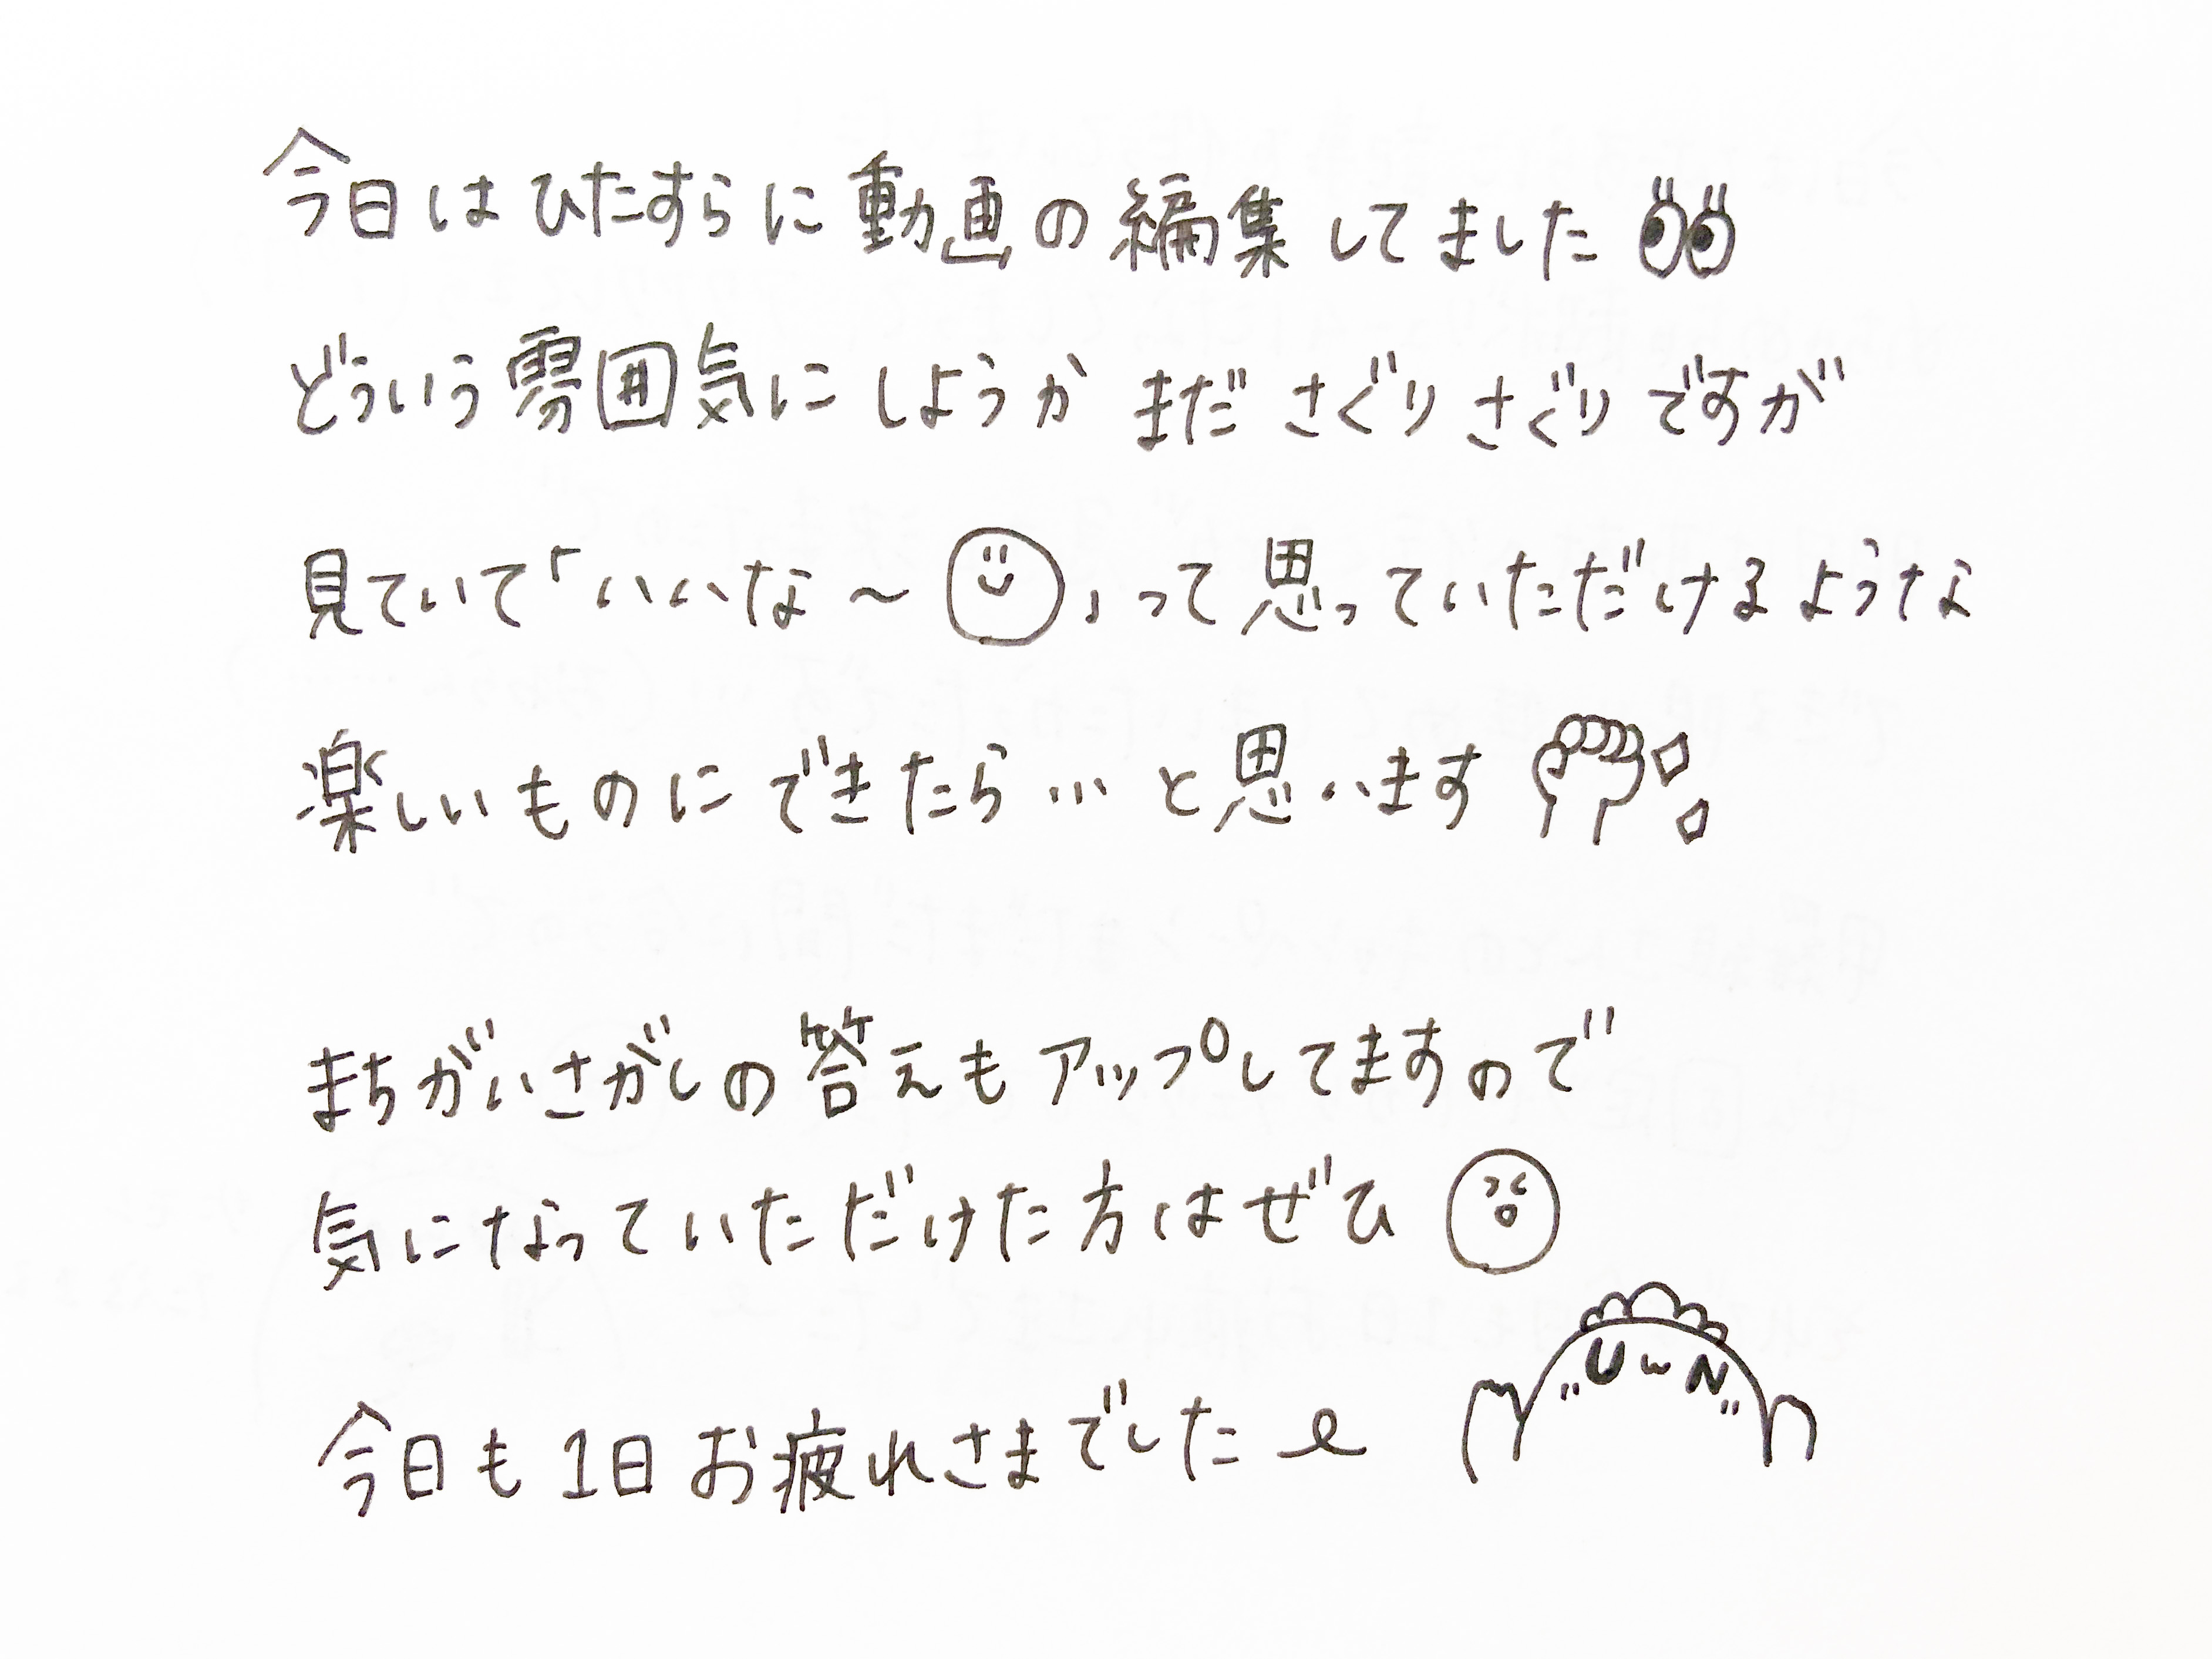 今日はひたすらに動画の編集してました
どういう雰囲気にしようか まだ さぐりさぐりですが
見ていて「いいな〜」って思っていただけるような
楽しいものにできたら…と思います
まちがいさがしの答えもアップしてますので
気になっていただけた方はぜひ
今日も1日お疲れさまでした